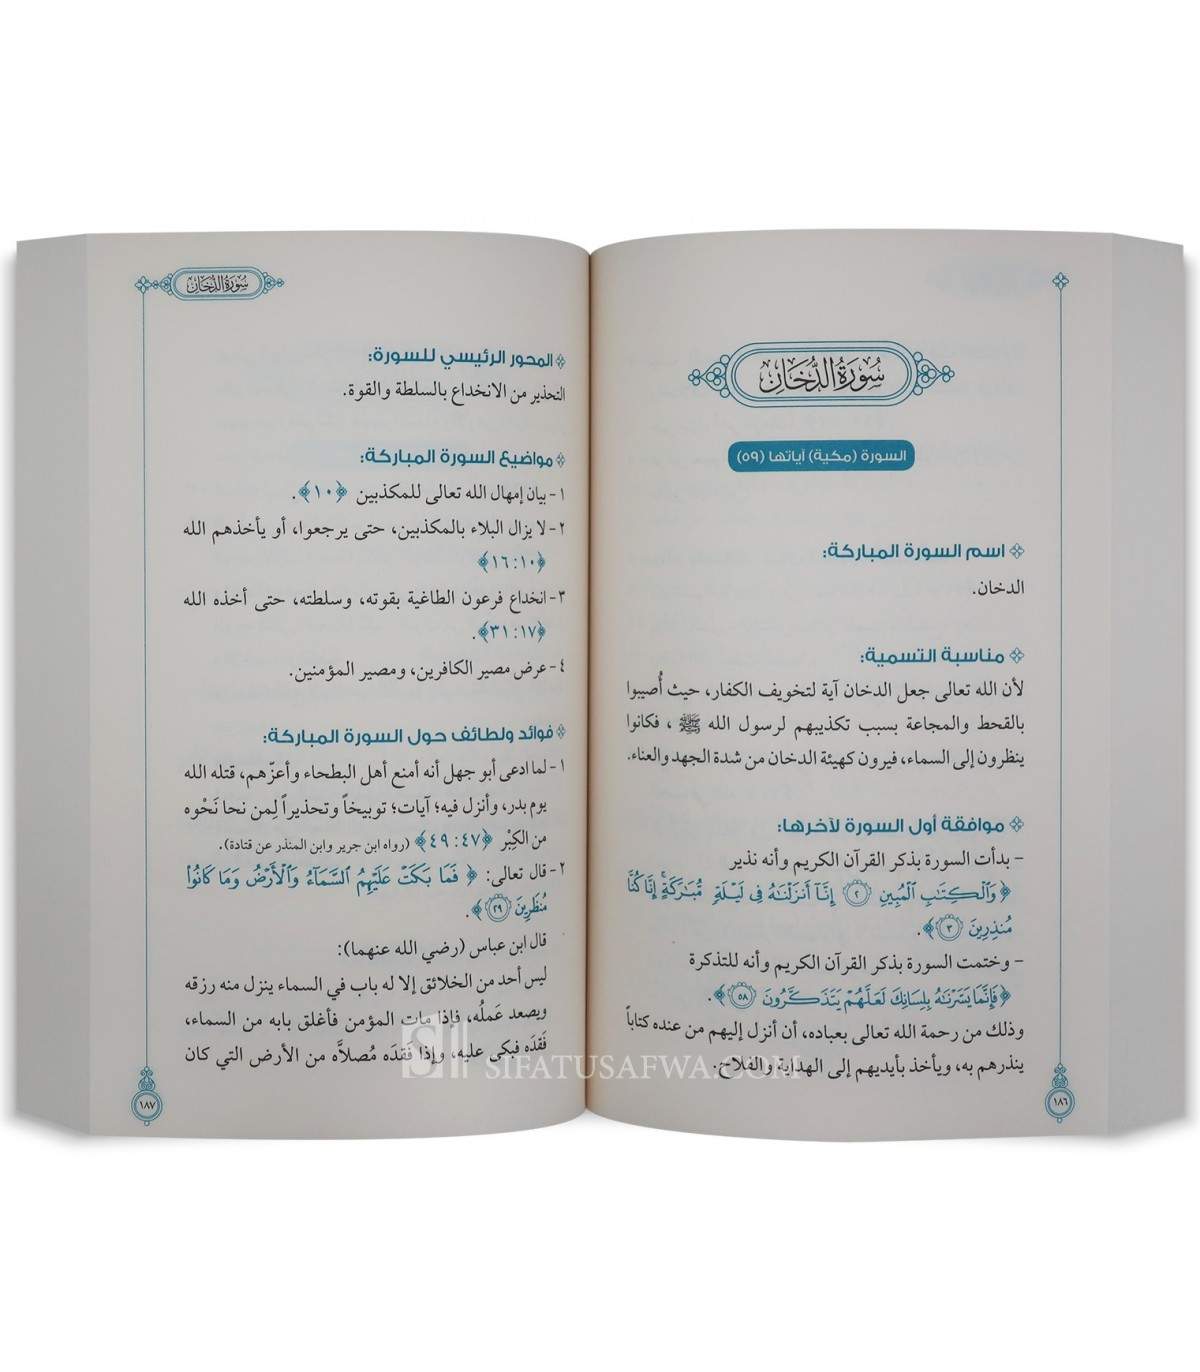 سُورَةُ الدُّخَانِ
السورة (مكية) آياتها (٥٩)
اسم السورة المباركة:
الدخان.
مناسبة التسمية:
لأن الله تعالى جعل الدخان آية لتخويف الكفار، حيث أُصيبوا
بالقحط والمجاعة بسبب تكذيبهم لرسول الله ﷺ، فكانوا
ينظرون إلى السماء، فيرون كهيئة الدخان من شدة الجهد والعناء.
موافقة أول السورة لآخرها:
- بدأت السورة بذكر القرآن الكريم وأنه نذير
﴿وَٱلْكِتَٰبِ ٱلْمُبِينِ ٢ إِنَّآ أَنزَلْنَٰهُ فِى لَيْلَةٍ مُّبَٰرَكَةٍ إِنَّا كُنَّا
مُنذِرِينَ ٣﴾.
- وختمت السورة بذكر القرآن الكريم وأنه للتذكرة
﴿فَإِنَّمَا يَسَّرْنَٰهُ بِلِسَانِكَ لَعَلَّهُمْ يَتَذَكَّرُونَ ٥٨﴾.
وذلك من رحمة الله تعالى بعباده، أن أنزل إليهم من عنده كتاباً
ينذرهم به، ويأخذ بأيديهم إلى الهداية والفلاح.
١٨٦
سُورَةُ الدُّخَانِ
المحور الرئيسي للسورة:
التحذير من الانخداع بالسلطة والقوة.
مواضيع السورة المباركة:
١- بيان إمهال الله تعالى للمكذبين ﴿١٠﴾.
٢- لا يزال البلاء بالمكذبين، حتى يرجعوا، أو يأخذهم الله
﴿١٠: ١٦﴾
٣- انخداع فرعون الطاغية بقوته، وسلطته، حتى أخذه الله
﴿١٧: ٣١﴾.
٤- عرض مصير الكافرين، ومصير المؤمنين.
فوائد ولطائف حول السورة المباركة:
١- لما ادعى أبو جهل أنه أمنع أهل البطحاء وأعزّهم، قتله الله
يوم بدر، وأنزل فيه؛ آيات؛ توبيخاً وتحذيراً لِمن نحا نَحْوه
من الكِبْر ﴿٤٧: ٤٩﴾ (رواه ابن جرير وابن المنذر عن قتادة).
٢- قال تعالى: ﴿فَمَا بَكَتْ عَلَيْهِمُ ٱلسَّمَآءُ وَٱلْأَرْضُ وَمَا كَانُوا۟
مُنظَرِينَ ٢٩﴾.
قال ابن عباس (رضي الله عنهما):
ليس أحد من الخلائق إلا له باب في السماء ينزل منه رزقه
ويصعد عَملُه، فإذا مات المؤمن فأغلق بابه من السماء،
فَقَدَه فبكى عليه، وإذا فَقدَه مُصلاَّه من الأرض التي كان
١٨٧
SIFATUSAFWA.COM